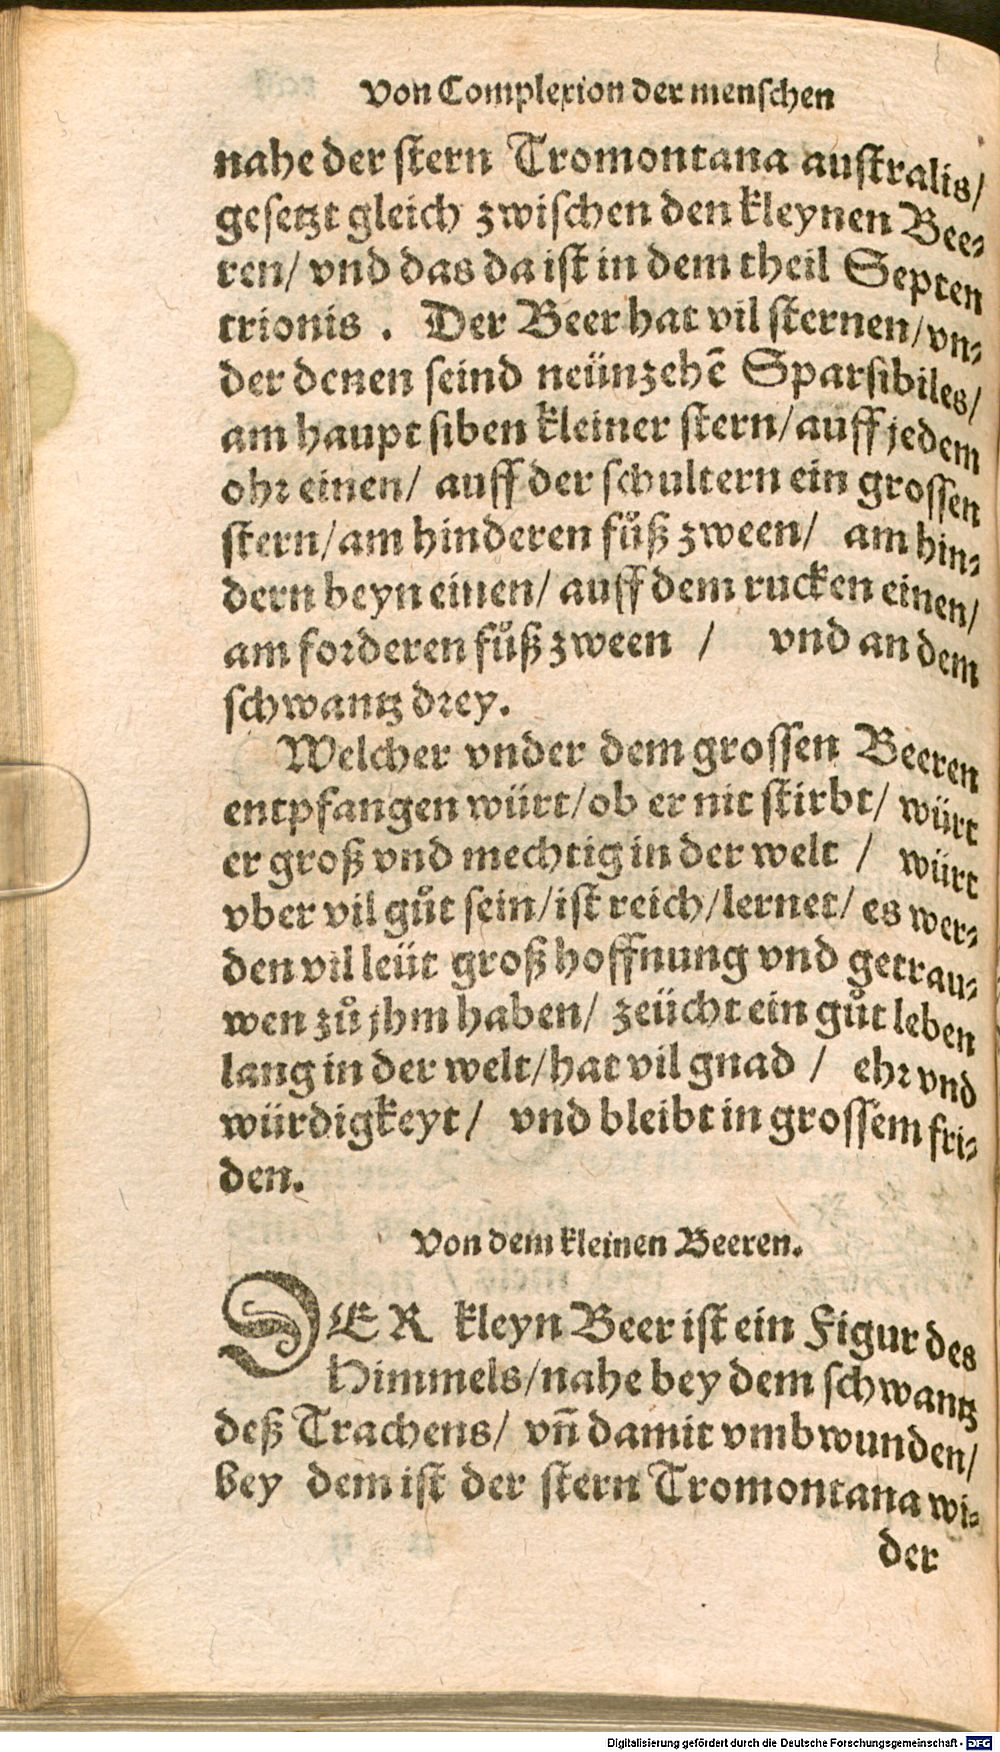 Von Complexion der menschen
nahe der stern Tromontana australis/
gesetzt gleich zwischen den kleynen Bee⸗
ren/ vnd das da ist in dem theil Septen
trionis . Der Beer hat vil sternen/vn⸗
der denen seind neünzehē Sparsibiles/
am haupt siben kleiner stern/auff jedem
ohr einen/ auff der schultern ein grossen
stern/am hinderen fůß zween/ am hin⸗
dern beyn einen/ auff dem rucken einen/
am forderen fůß zween / vnd an dem
schwantz drey.
Welcher vnder dem grossen Beeren
entpfangen würt/ob er nit stirbt/ würt
er groß vnd mechtig in der welt / würt
vber vil gůt sein/ist reich/lernet/ es wer⸗
den vil leüt groß hoffnung vnd getrau⸗
wen zů jhm haben/ zeücht ein gůt leben
lang in der welt/hat vil gnad / ehr vnd
würdigkeyt/ vnd bleibt in grossem fri⸗
den.
Von dem kleinen Beeren.
DER kleyn Beer ist ein Figur des
Himmels/nahe bey dem schwantz
deß Trachens/ vñ damit vmbwunden/
bey dem ist der stern Tromontana wi⸗
der
Digitalisierung gefördert durch die Deutsche Forschungsgemeinschaft - DFG